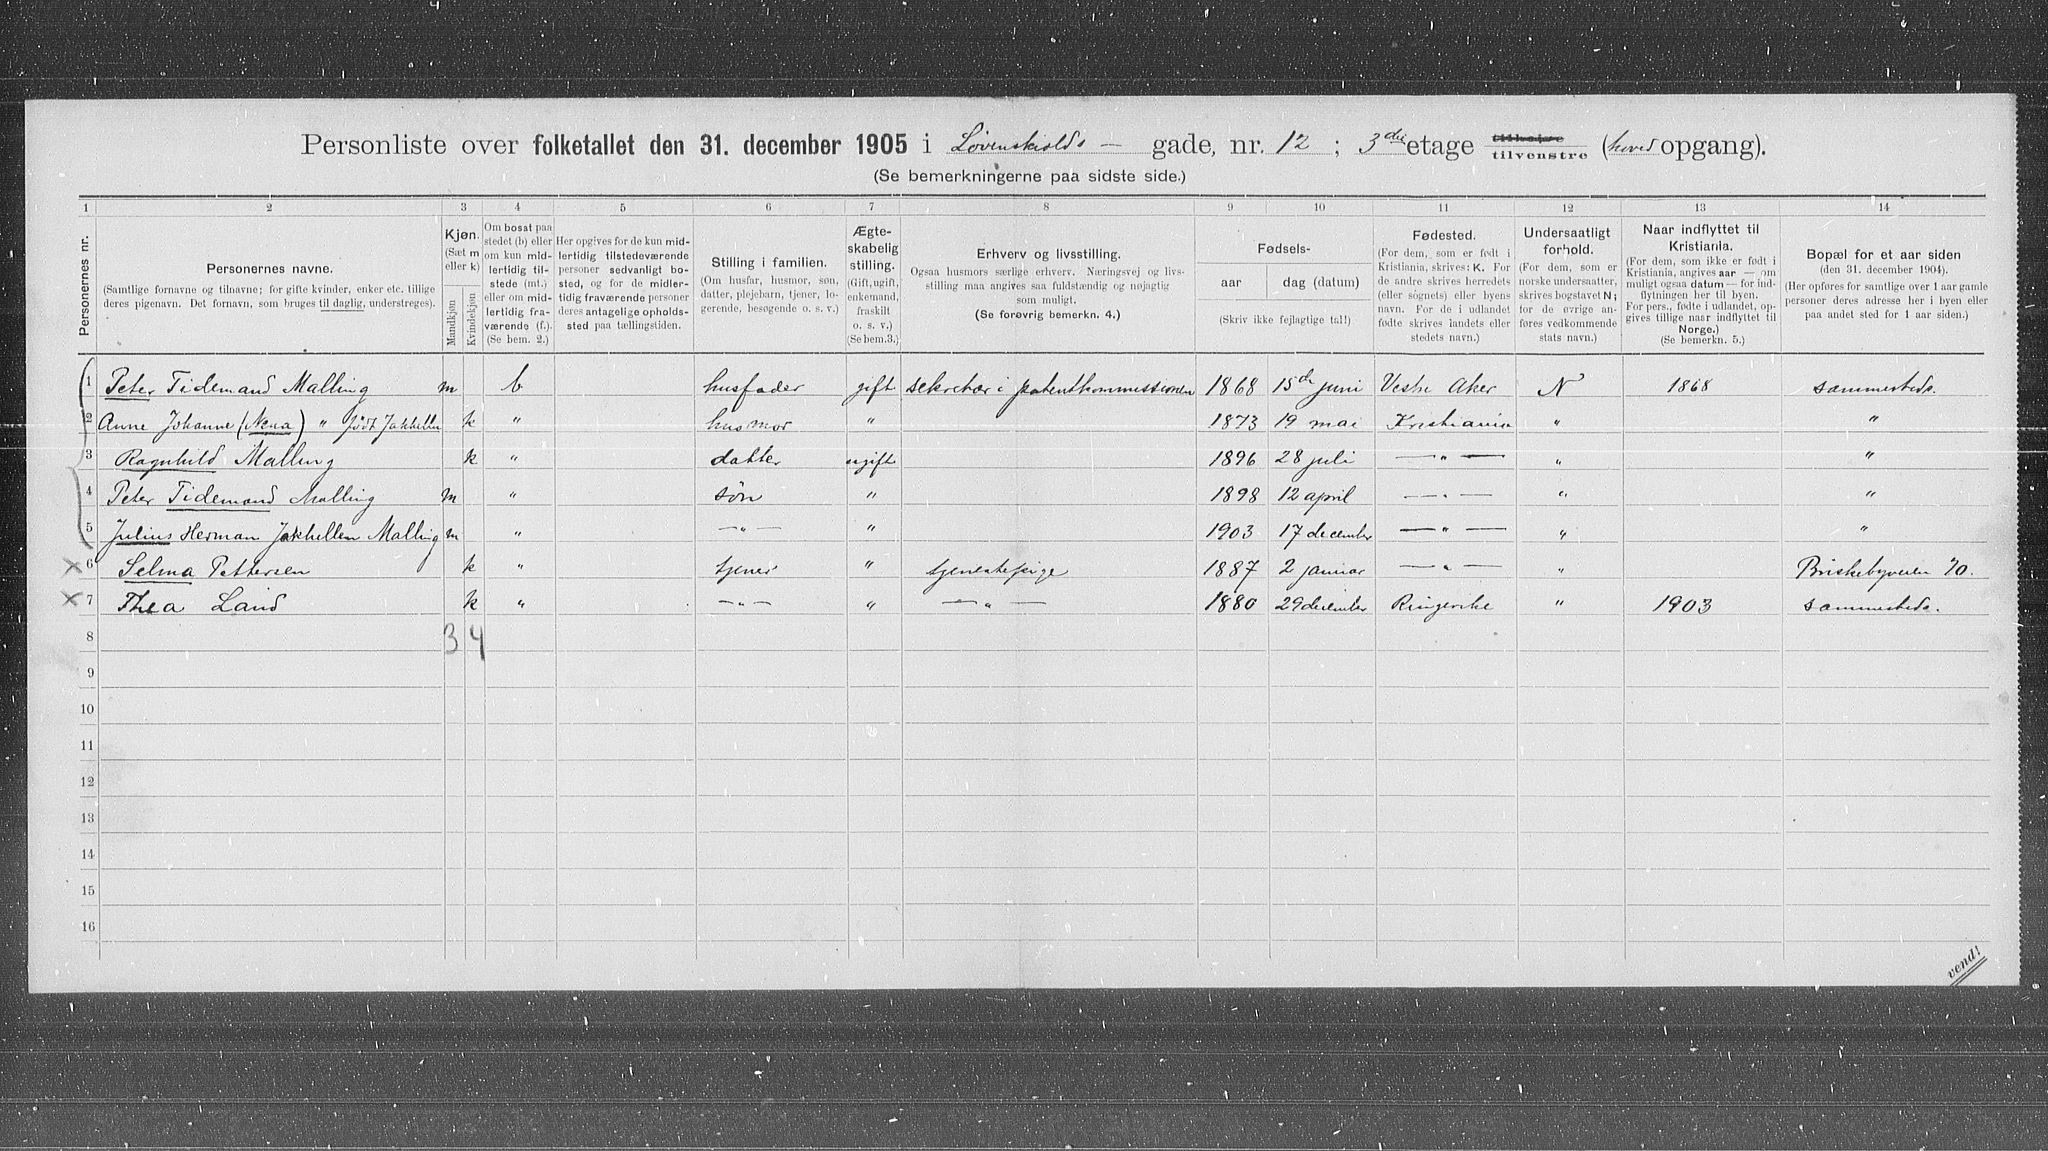 Personliste over folketallet den 31. december 1905 i Løvenskiolds — gade, nr. 12 ; 3die etage tilhøire tilvenstre (hoved opgang).
(Se bemerkningerne paa sidste side.)
1 2 3 4 5 6 7 8 9 10 11 12 13 14
Personernes nr.
Personernes navne.
(Samtlige fornavne og tilnavne; for gifte kvinder, enker etc. tillige
deres pigenavn. Det fornavn, som bruges til daglig, understreges).
Kjøn.
(Sæt m
eller k)
Mandkjøn
Kvindekjøn
Om bosat paa
stedet (b) eller
om kun mid-
lertidig til-
stede (mt.)
eller om mid-
lertidig fra-
værende (f.).
(Se bem. 2.)
Her opgives for de kun mid-
lertidig tilstedeværende
personer sedvanlig bo-
sted, og for de midler-
tidig fraværende personer
deres antagelige opholds-
sted paa tællingstiden.
Stilling i familien.
(Om husfar, husmor, søn,
datter, plejebarn, tjener, lo-
gerende, besøgende o. s. v.)
Ægte-
skabelig
stilling.
(Gift, ugift,
enkemand,
fraskilt
o. s. v.)
(Se bem.3.)
Erhverv og livsstilling.
Ogsaa husmors særlige erhverv. Næringsvej og livs-
stilling maa angives saa fuldstændig og nøjagtig
som muligt.
(Se forøvrig bemerkn. 4.)
Fødsels-
aar dag (datum)
(Skriv ikke fejlagtige tal!)
Fødested.
(For dem, som er født i
Kristiania, skrives: K. For
de andre skrives herredets
(eller sognets) eller byens
navn. For de i udlandet
fødte skrives landets eller
stedets navn.)
Undersaatligt
forhold.
(For dem, som er
norske undersaatter,
skrives bogstavet N;
for de øvrige an-
føres vedkommende
stats navn.)
Naar indflyttet til
Kristiania.
(For dem, som ikke er født i
Kristiania, angives aar — om
muligt ogsaa datum — for ind-
flytningen her til byen.
For pers., fødte i udlandet, op-
gives tillige naar indflyttet til
Norge.)
(Se bemerkn. 5.)
Bopæl for et aar siden
(den 31. december 1904).
(Her opføres for samtlige over 1 aar gamle
personer deres adresse her i byen eller
paa andet sted for 1 aar siden.)
1 Peter Tidemand Malling m b husfader gift sekretær i patentkommissionen 1868 15de juni Vestre Aker N 1868 sammesteds.
2 Anne Johanne (Nena) " født Jakhelln k " husmor " 1873 19 mai Kristiania " "
3 Ragnhild Malling k " datter ugift 1896 28 juli — " — " "
4 Peter Tidemand Malling m " søn " 1898 12 april — " — " "
5 Julius Herman Jakhellen Malling m " — " — " 1903 17 december — " — " "
x 6 Selma Pettersen k " tjener " tjenestepige 1887 2 januar — " — " Briskebyveien 70.
x 7 Thea Land k " — " — " — " — 1880 29 december Ringerike " 1903 sammesteds.
8 3 4
9
10
11
12
13
14
15
16
vend!